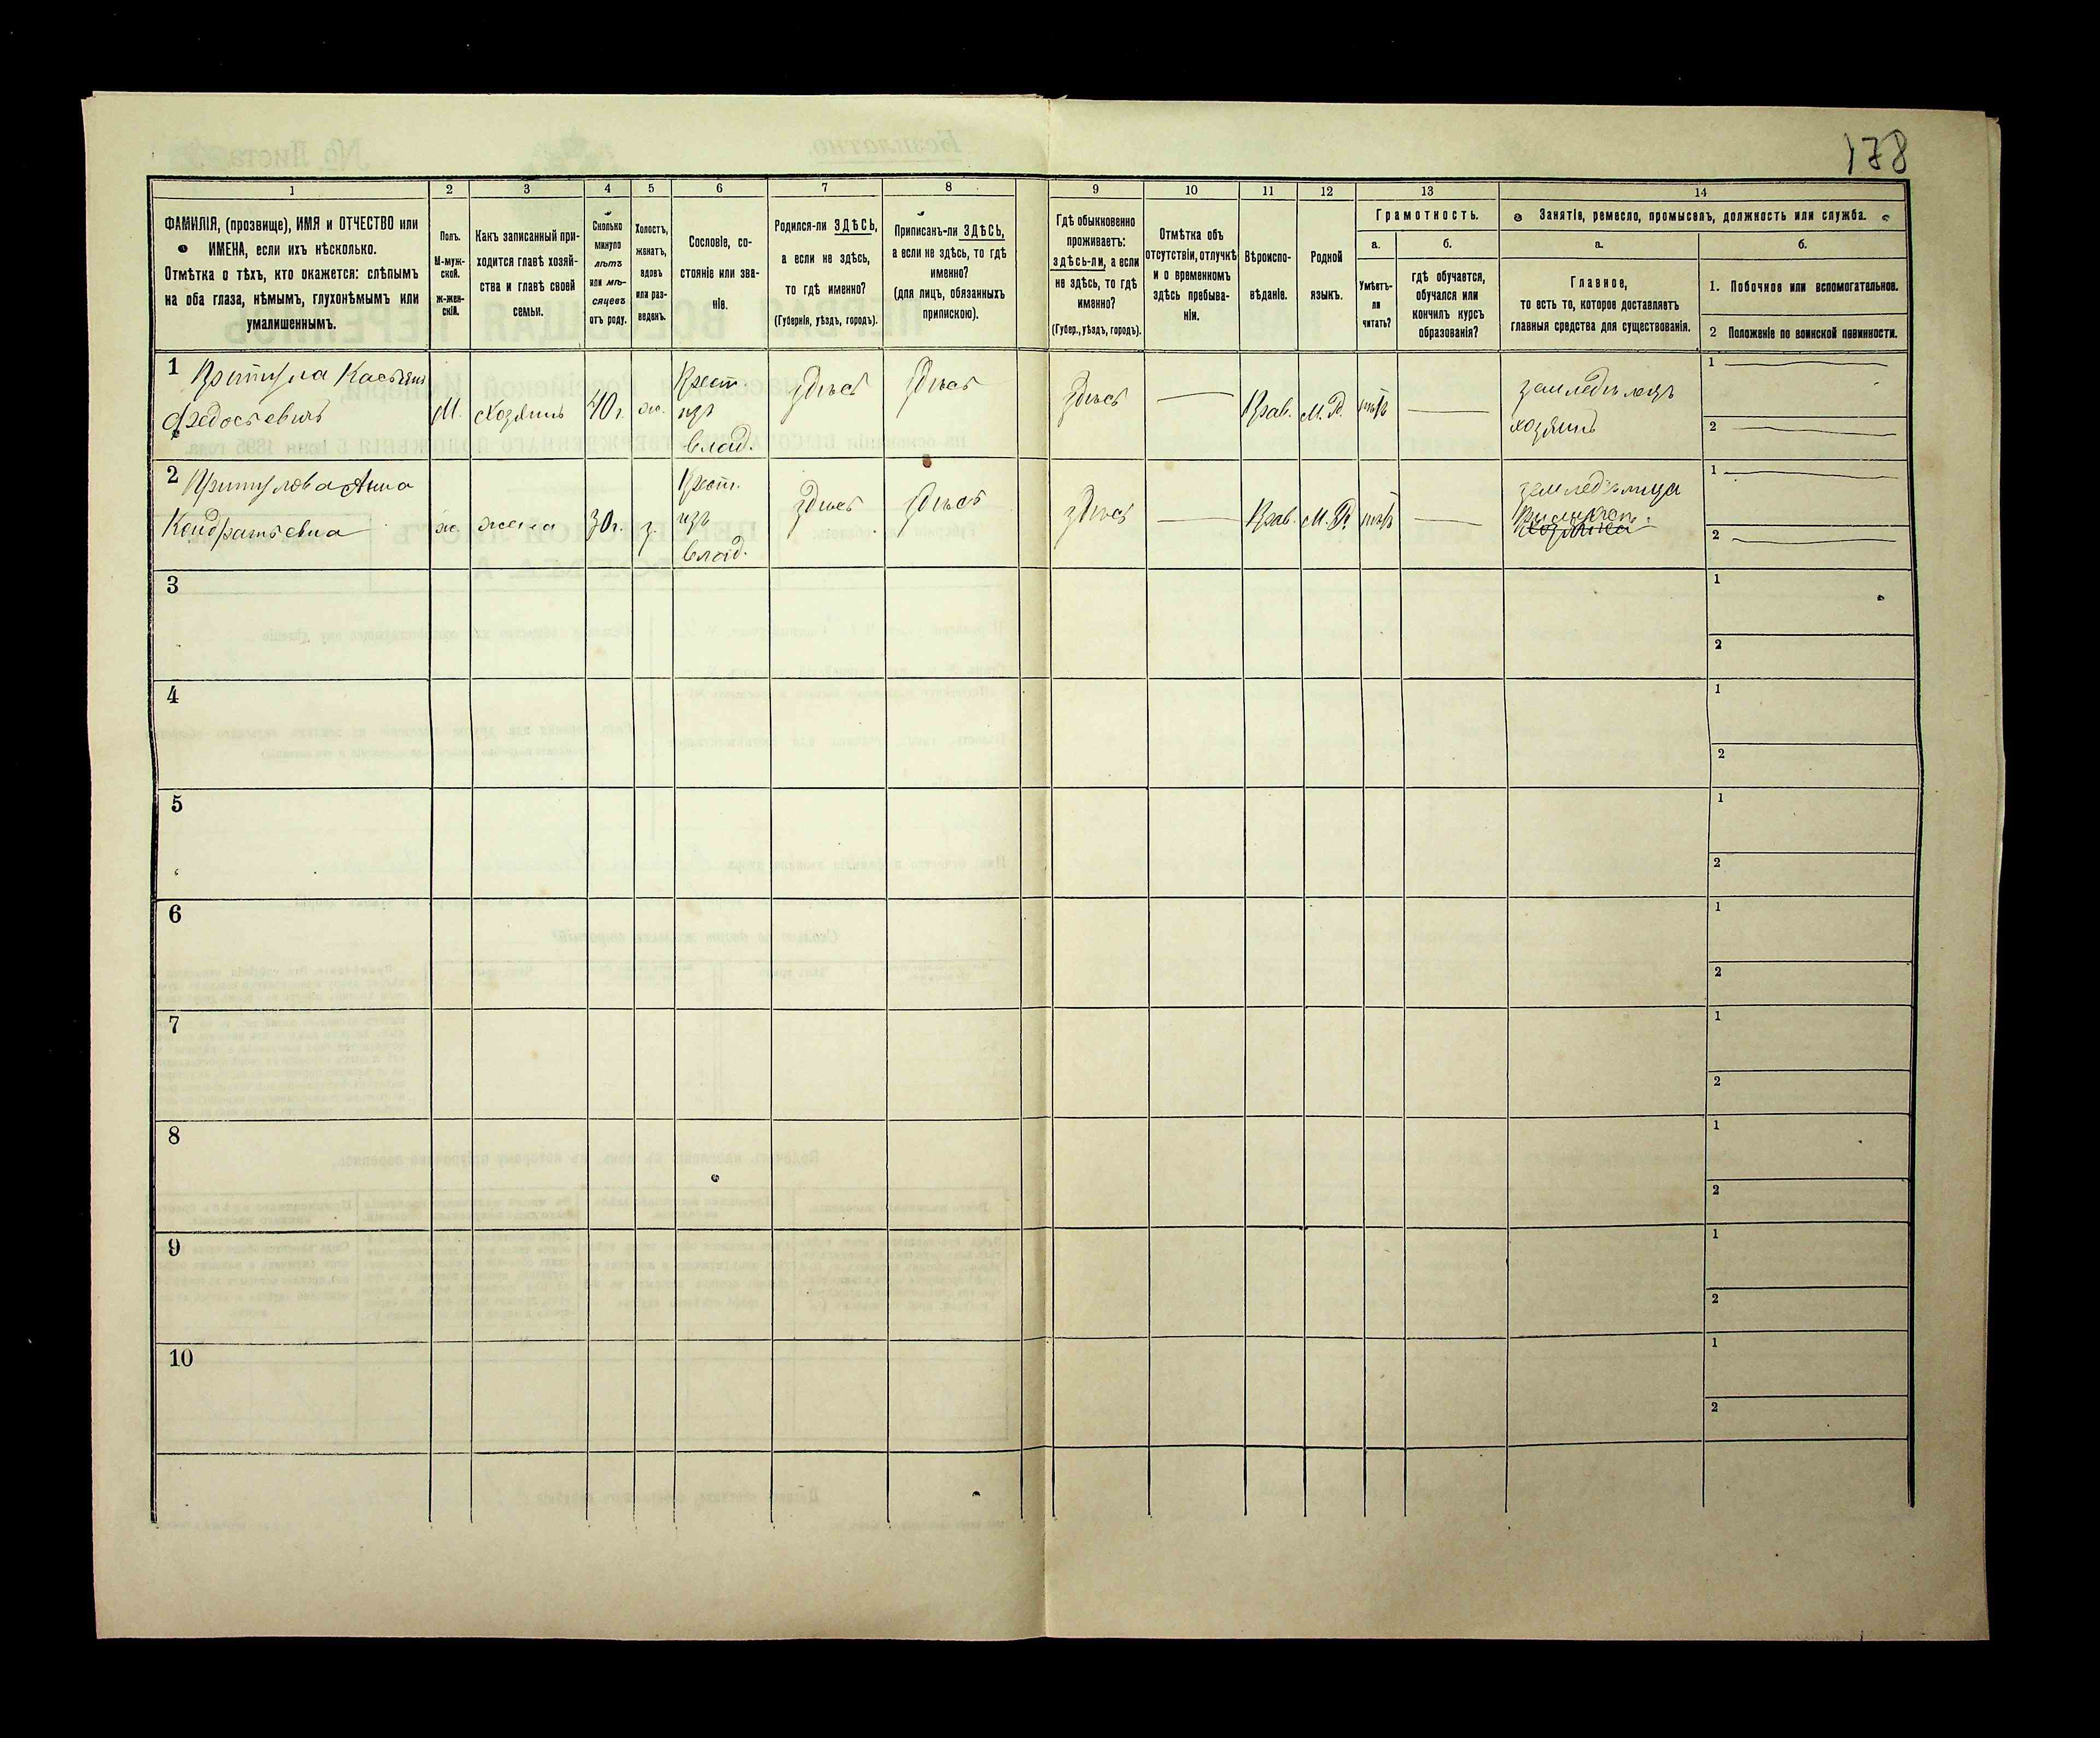 178
1
2
3
4
5
6
7
8
9
10
11
12
13
14
ФАМИЛІЯ, (прозвище), ИМЯ и ОТЧЕСТВО или
ИМЕНА, если ихъ нѣсколько.
Отмѣтка о тѣхъ, кто окажется: слѣпымъ
на оба глаза, нѣмымъ, глухонѣмымъ или
умалишеннымъ.
Полъ.
М-муж-
ской.
ж-жен-
скій.
Какъ записанный при-
ходится главѣ хозяй-
ства и главѣ своей
семьи.
Сколько
минуло
лѣтъ
или мѣ-
сяцевъ
отъ роду.
Холостъ,
женатъ,
вдовъ
или раз-
веденъ.
Сословіе, со-
стояніе или зва-
ніе.
Родился-ли ЗДѢСЬ,
а если не здѣсь,
то гдѣ именно?
(Губернія, уѣздъ, городъ).
Приписанъ-ли ЗДѢСЬ,
а если не здѣсь, то гдѣ
именно?
(для лицъ, обязанныхъ
припискою).
Гдѣ обыкновенно
проживаетъ:
здѣсь-ли, а если
не здѣсь, то гдѣ
именно?
(Губер., уѣздъ, городъ).
Отмѣтка объ
отсутствіи, отлучкѣ
и о временномъ
здѣсь пребыва-
ніи.
Вѣроиспо-
вѣданіе.
Родной
языкъ.
Грамотность.
а.
Умѣетъ-
ли
читать?
б.
гдѣ обучается,
обучался или
кончилъ курсъ
образованія?
Занятіе, ремесло, промыселъ, должность или служба.
а.
Главное,
то есть то, которое доставляетъ
главныя средства для существованія.
б.
1. Побочное или вспомогательное.
2 Положеніе по воинской повинности.
1 Притула Касьянъ
Федосѣевичъ
М. Хозяинъ 40 г. ж.
Крест.
изъ
влад.
здѣсь здѣсь здѣсь — Прав. М. Р. нѣтъ —
земледѣлецъ
хозяинъ
1 —
2 —
2 Притулова Анна
Кондратьевна
ж. жена 30 г. з.
Крест.
изъ
влад.
здѣсь здѣсь здѣсь — Прав. М. Р. нѣтъ —
1 —
2 —
3
1
2
4
1
2
5
1
2
6
1
2
7
1
2
8
1
2
9
1
2
10
1
2